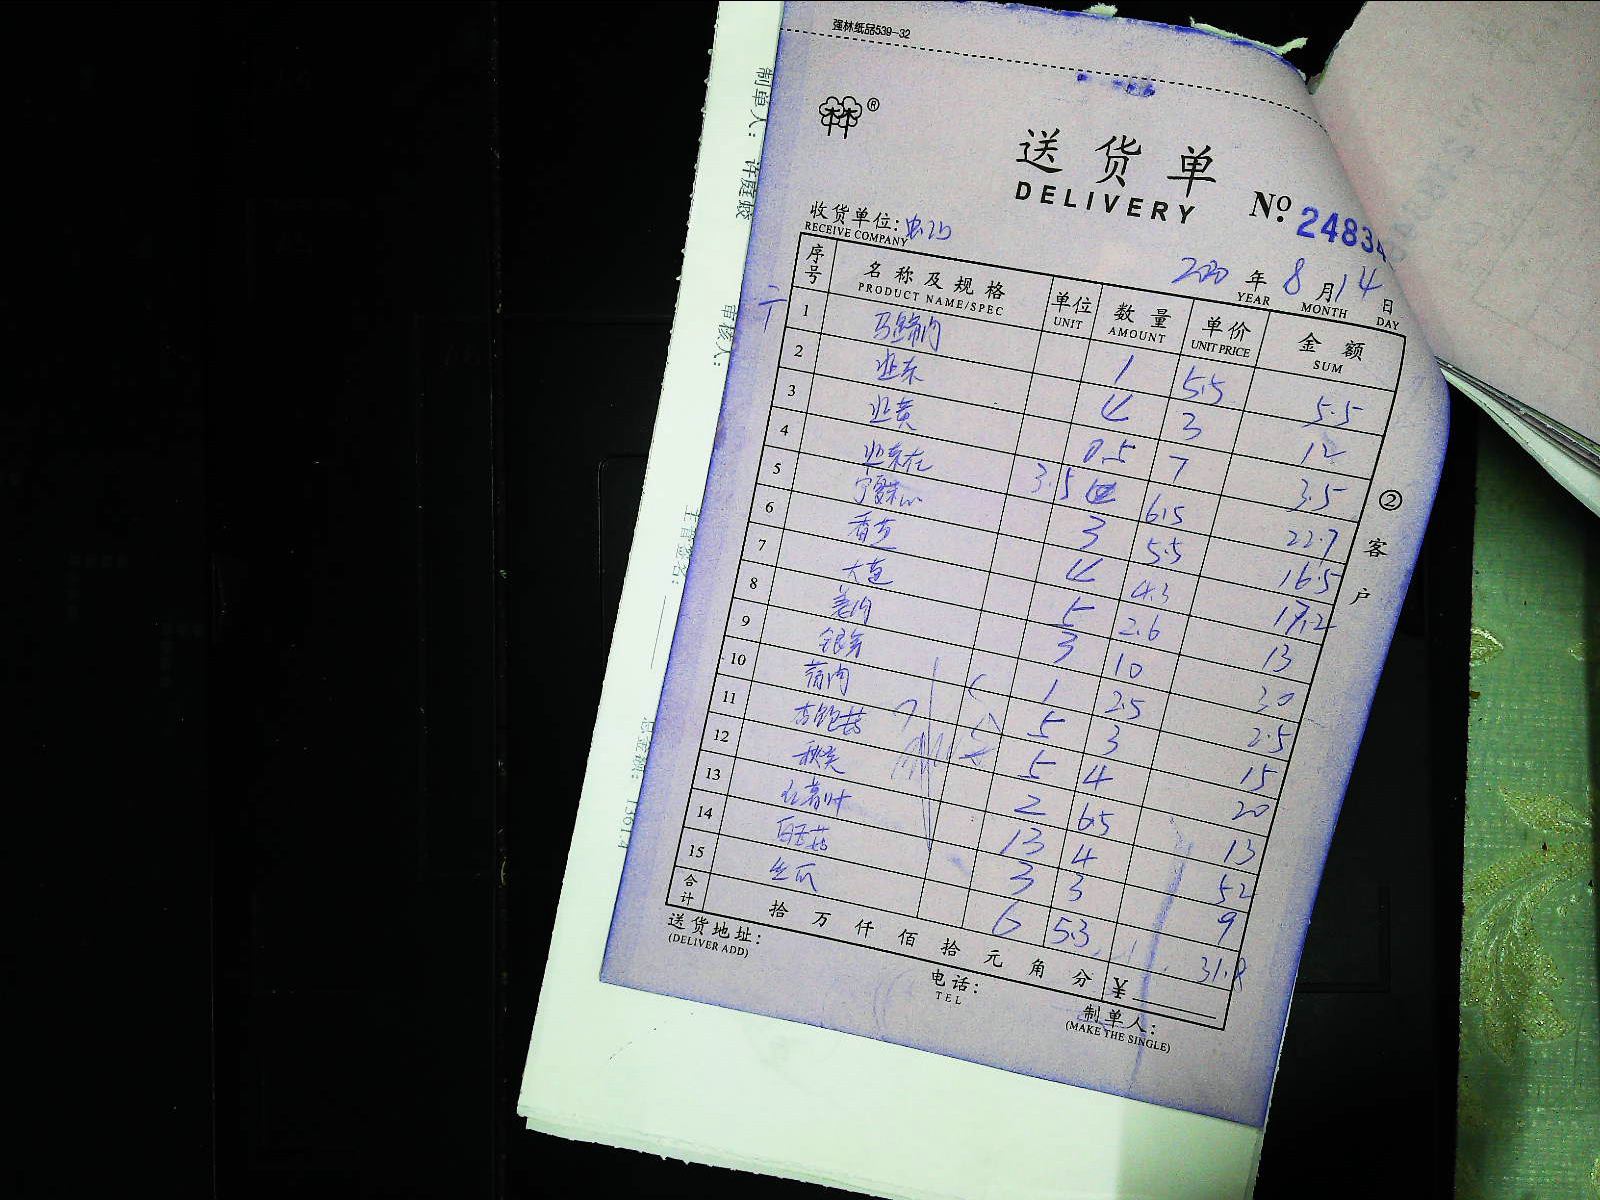 强林纸品539-32
®
送货单
DELIVERY
№ 2483
收货单位:
RECEIVE COMPANY
2020 年 8 月 14 日
YEAR MONTH DAY
序号 名称及规格 单位 数量 单价 金额
PRODUCT NAME/SPEC UNIT AMOUNT UNIT PRICE SUM
1 马蹄肉 1 5.5 5.5
2 4 3 12
3 0.5 7 3.5
4 3.5 6.5 22.7
5 3 5.5 16.5
6 4 4.3 17.2
7 5 2.6 13
8 姜肉 3 10 30
9 银芽 1 2.5 2.5
10 5 3 15
11 杏鲍菇 5 4 20
12 秋葵 2 6.5 13
13 红薯叶 13 4 52
14 白玉菇 3 3 9
15 丝瓜 6 5.3 31.8
合计 拾 万 仟 佰 拾 元 角 分 ¥
送货地址:
(DELIVER ADD)
电话:
TEL
制单人:
(MAKE THE SINGLE)
② 客户
制单人: 许庭
审核人:
主管签名:
总金额: 1361.4